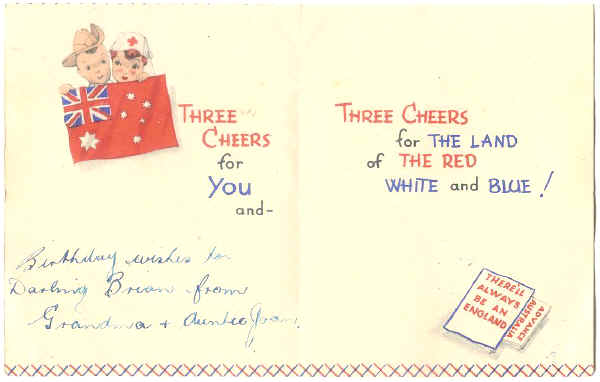 THREE
CHEERS
for
YOU
and-
Birthday wishes to
Darling Brian from
Grandma + Auntie Joan.
THREE CHEERS
for THE LAND
of THE RED
WHITE and BLUE!
THERE'LL
ALWAYS
BE AN
ENGLAND
ADVANCE
AUSTRALIA